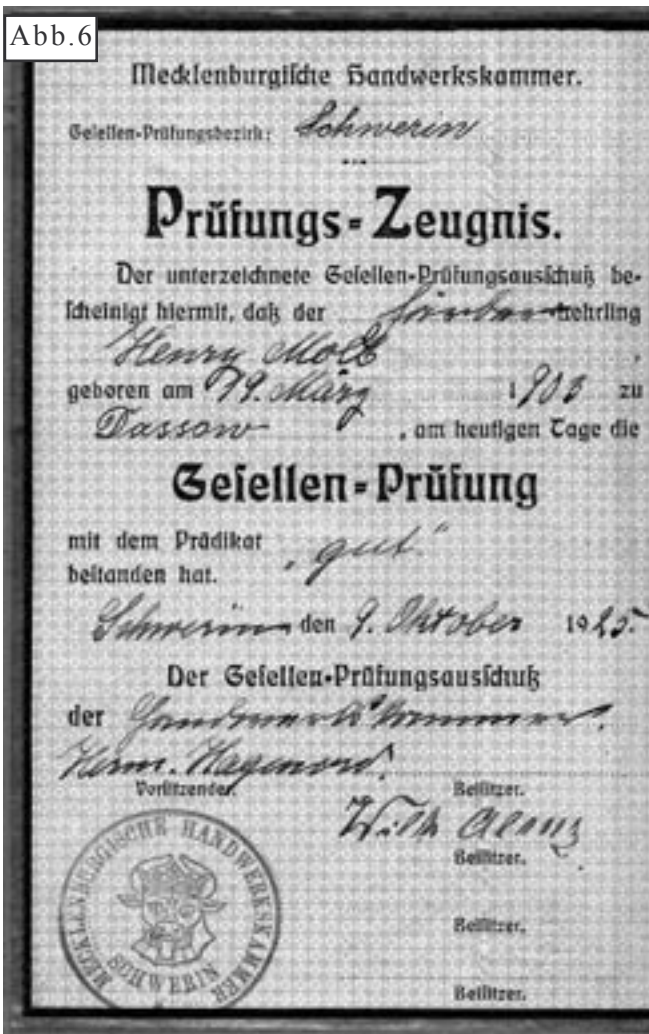 Abb.6
Mecklenburgische Handwerkskammer.
Gesellen-Prüfungsbezirk: Schwerin
Prüfungs-Zeugnis.
Der unterzeichnete Gesellen-Prüfungsausschuß be-
scheinigt hiermit, daß der Färber Lehrling
Henry Moll,
geboren am 19. März 1903 zu
Dassow, am heutigen Tage die
Gesellen-Prüfung
mit dem Prädikat „gut“
bestanden hat.
Schwerin den 9. Oktober 1925.
Der Gesellen-Prüfungsausschuß
der Handwerkskammer.
Herm.
Vorsitzender. Beisitzer.
Wilh
Beisitzer.
Beisitzer.
Beisitzer.
MECKLENBURGISCHE HANDWERKSKAMMER
SCHWERIN